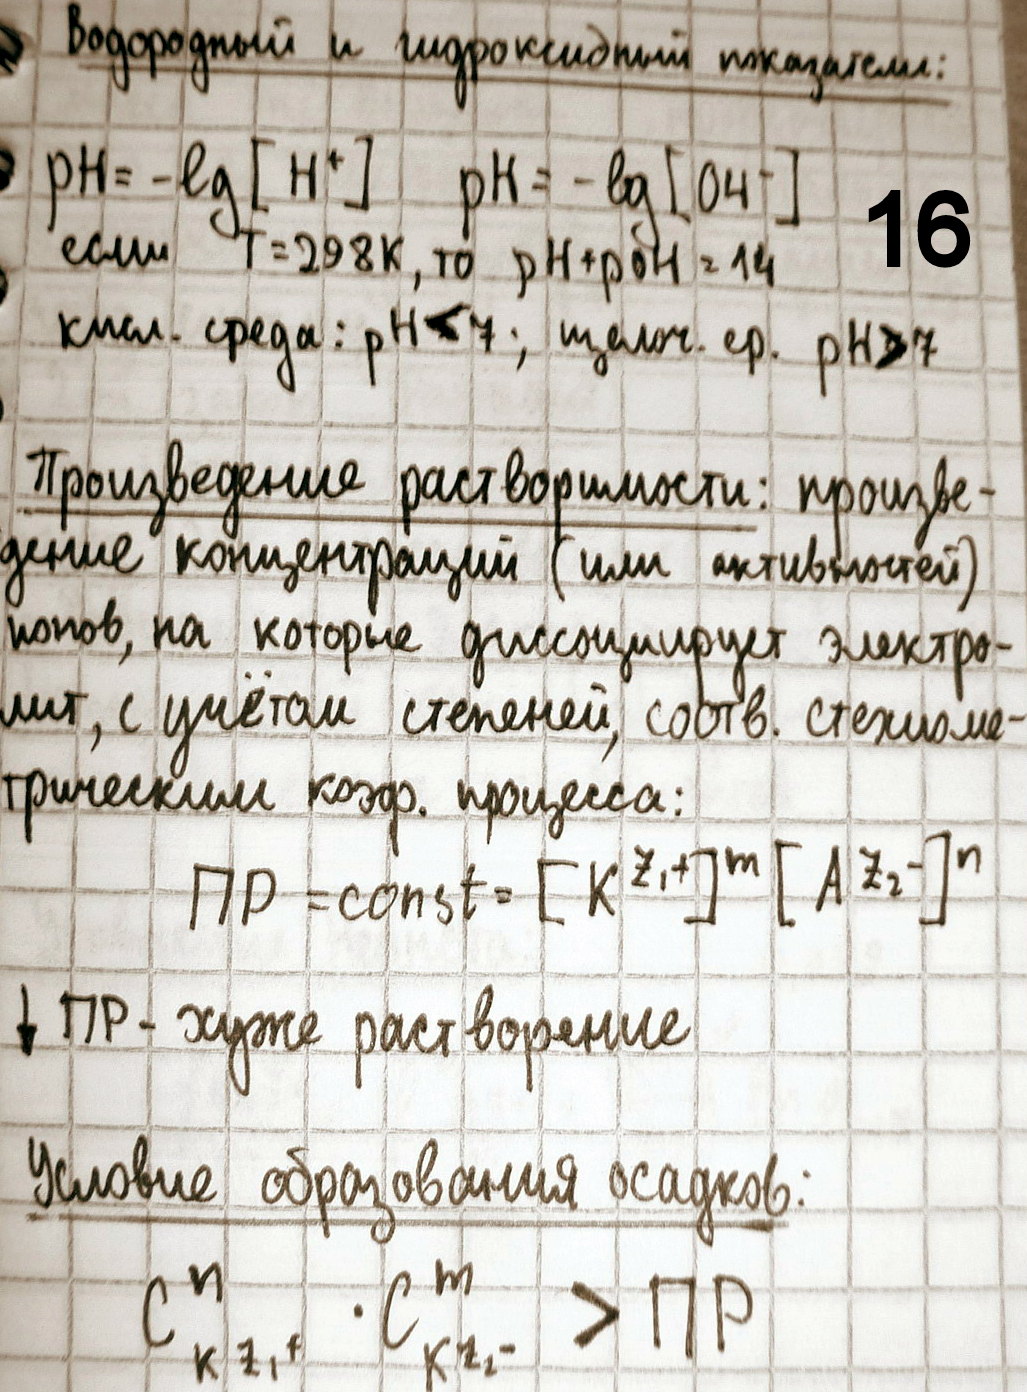 Водородный и гидроксидный показатели:
pH = -lg[H⁺] pH = -lg[OH⁻]
16
если T=298K, то pH+pOH = 14
кисл. среда: pH<7; щелоч. ср. pH>7
Произведение растворимости: произве-
дение концентраций (или активностей)
ионов, на которые диссоциирует электро-
лит, с учётом степеней, соотв. стехиоме-
трическим коэф. процесса:
ПР = const = [K^{Z₁+}]^m [A^{Z₂-}]^n
↓ ПР - хуже растворение
Условие образования осадков:
C^n_{K^{Z₁+}} · C^m_{K^{Z₂-}} > ПР